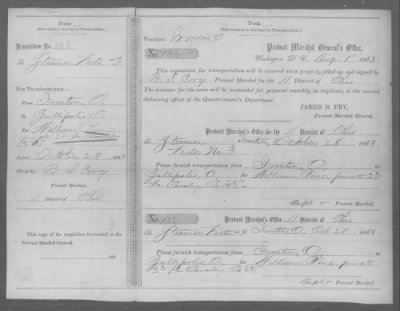 From
Requisition No. 133
To
Steamer Victor No 3
For Transportation:
From Ironton O.
To Gallipolis O.
For William
Co F
Dated October 28 1863
Given by B. F. Cory
Provost Marshal
11 District of Ohio
This copy of the requisition forwarded to the
Provost Marshal General.
186
Station: Ironton O
No. 133
Provost Marshal General's Office,
Washington, D. C., Aug 1st 1863
This requisition for transportation will be honored when properly filled up and signed by
B. F. Cory Provost Marshal for the 11 District of Ohio
The account for the same will be forwarded for payment monthly, in triplicate, to the nearest
disbursing officer of the Quartermaster's Department.
JAMES B. FRY,
Provost Marshal General.
Provost Marshal's Office for the 11 District of Ohio
To Steamer Ironton, October 28 1863
Victor No. 3
Please furnish transportation from Ironton O. to
Gallipolis, O. for William private 2d
Va Cavalry Co F
Capt & Provost Marshal.
No. 133
Provost Marshal's Office 11 District of Ohio
To Steamer Victor No 3 Ironton O, Oct 28 1863
Please furnish transportation from Ironton O, to
Gallipolis O. for William private
2d Va. Cavalry Co F.
Capt & Provost Marshal.